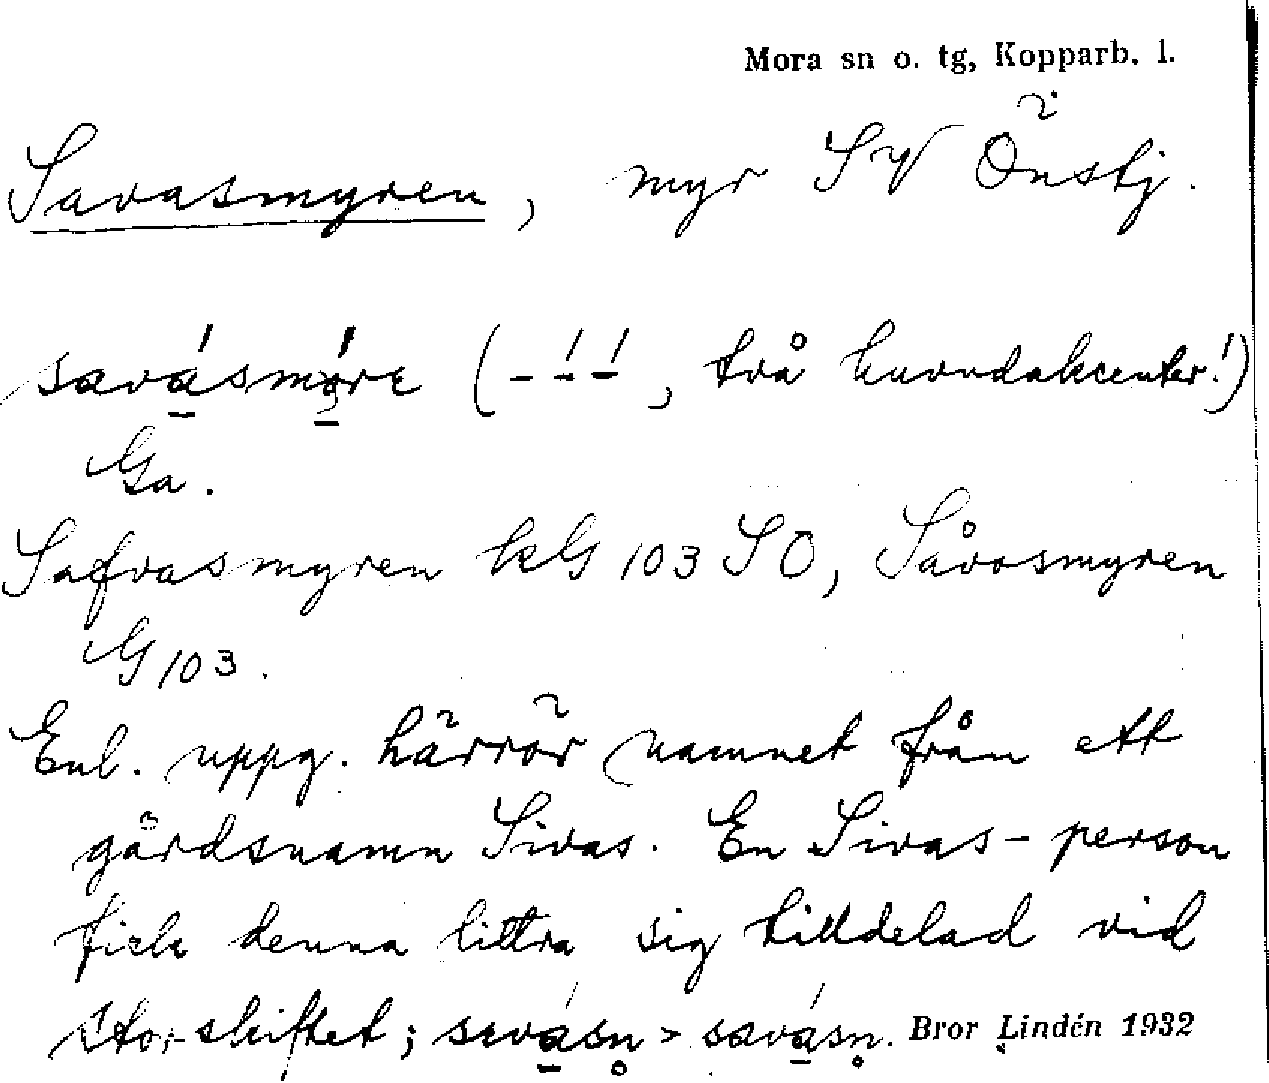 Mora sn o. tg, Kopparb. l.
Savasmyren, myr SV Önsbj.
savásmo̤re (– –́ –́, två huvudakcenter!)
Ga.
Safvasmyren kG 103 SO, Såvosmyren
G 103.
Enl. uppg. härrör namnet från ett
gårdsnamn Sivas. En Sivas-person
fick denna littra sig tilldelad vid
storskiftet; sevásn̥ > savásn̥. Bror Lindén 1932